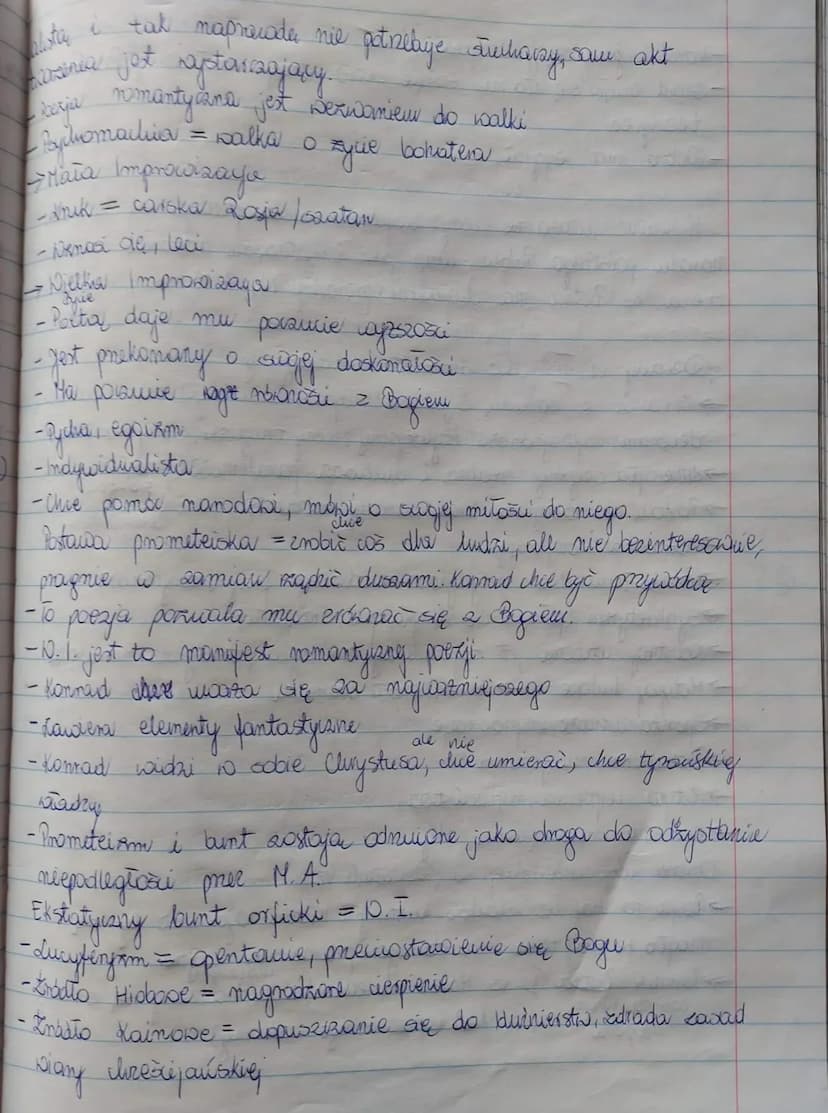 i tak naprawdę nie potrzebuje słuchaczy, sam akt
tworzenia jest wystarczający.
- Poezja romantyczna jest wezwaniem do walki
- Psychomachia = walka o życie bohatera
→ Mała Improwizacja
- Kruk = carska Rosja / szatan
- Wznosi się, leci
→ Wielka Improwizacja
- Bycie Poetą daje mu poczucie wyższości
- Jest przekonany o swojej doskonałości
- Ma poczucie równości z Bogiem
- Pycha, egoizm
- Indywidualista
- Chce pomóc narodowi, mówi o swojej miłości do niego.
Postawa prometejska = chce zrobić coś dla ludzi, ale nie bezinteresownie,
pragnie w zamian rządzić duszami. Konrad chce być przywódcą
- To poezja pozwala mu zrównać się z Bogiem.
- W.I. jest to manifest romantycznej poezji
- Konrad uważa się za najważniejszego
- Zawiera elementy fantastyczne
- Konrad widzi w sobie Chrystusa, ale nie chce umierać, chce tyrańskiej
władzy
- Prometeizm i bunt zostają odrzucone jako droga do odzyskania
niepodległości przez M.A.
Ekstatyczny bunt orficki = W.I.
- Lucyferyzm = opętanie, przeciwstawienie się Bogu
- Źródło Hiobowe = nagrodzone cierpienie
- Źródło Kainowe = dopuszczanie się do bluźnierstw, zdrada zasad
wiary chrześcijańskiej